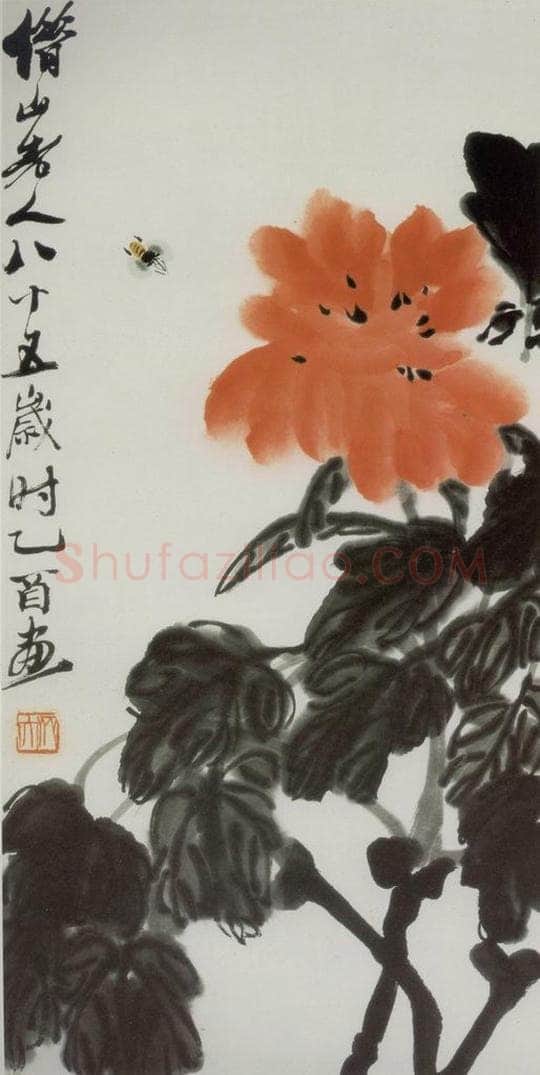 借山老人八十五歲时乙酉画
Shufaziliao.COM